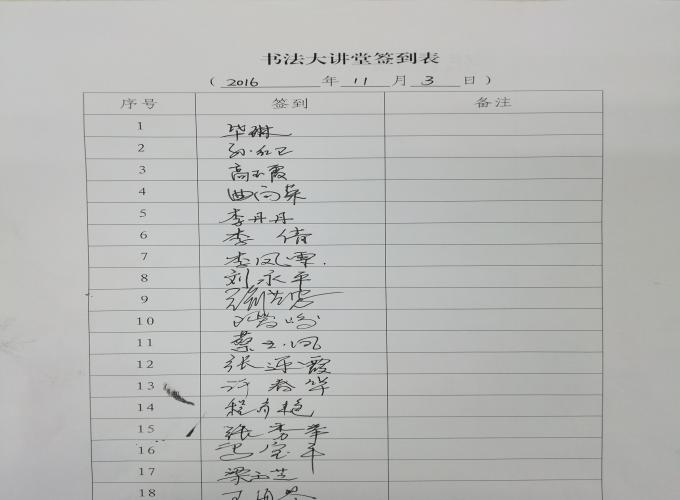 书法大讲堂签到表
（ 2016 年 11 月 3 日）
序号 签到 备注
1 毕琳
2 孙红卫
3 高玉霞
4 曲向荣
5 李丹丹
6 李倩
7 李凤
8 刘永平
9
10
11 蔡玉凤
12 张연霞
13 许春华
14 程青艳
15 张秀举
16 冯宝平
17 梁玉芝
18 王